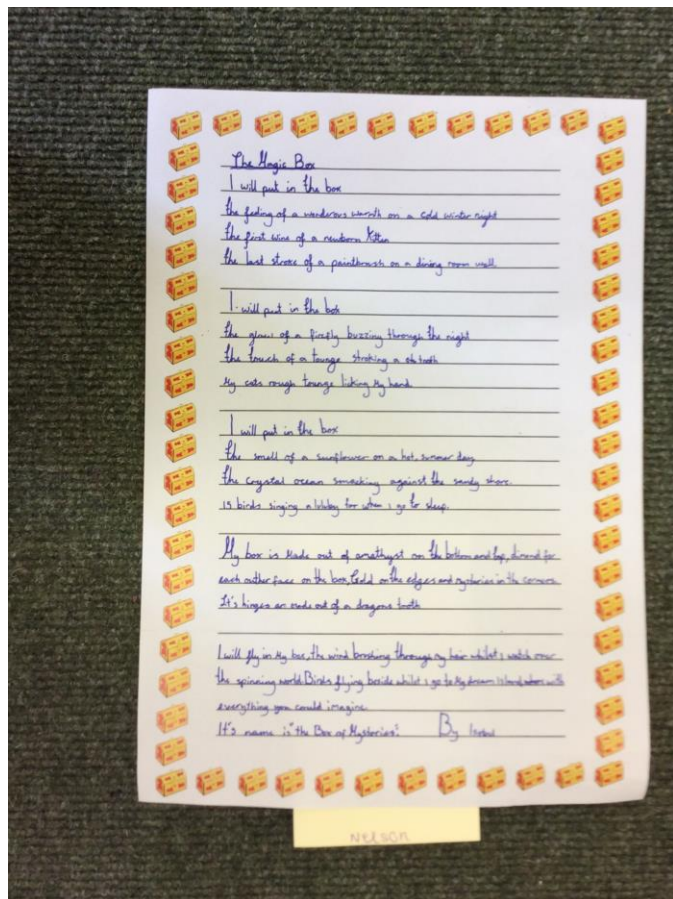 The Magic Box
I will put in the box
the feeling of a wonderous warmth on a cold winter night
the first wine of a newborn kitten
the last stroke of a paintbrush on a dining room wall
I will put in the box
the glow of a firefly buzzing through the night
the touch of a tounge stroking a tooth
My cats rough tounge licking My hand
I will put in the box
the smell of a sunflower on a hot, summer day
the crystal ocean smacking against the sandy shore.
15 birds singing a lobby for when i go to sleep.
My box is Made out of amathyst on the bottom and top, dimond for
each outher face on the box, Gold on the edges and mysteries in the corners
It's hinges are made out of a dragons tooth
I will fly in My box, the wind brushing through my hair whilst i watch over
the spinning world Birds flying beside whilst i go to My dream Island, with
everything you could imagine.
It's name is "the Box of Mysteries". By
Nelson